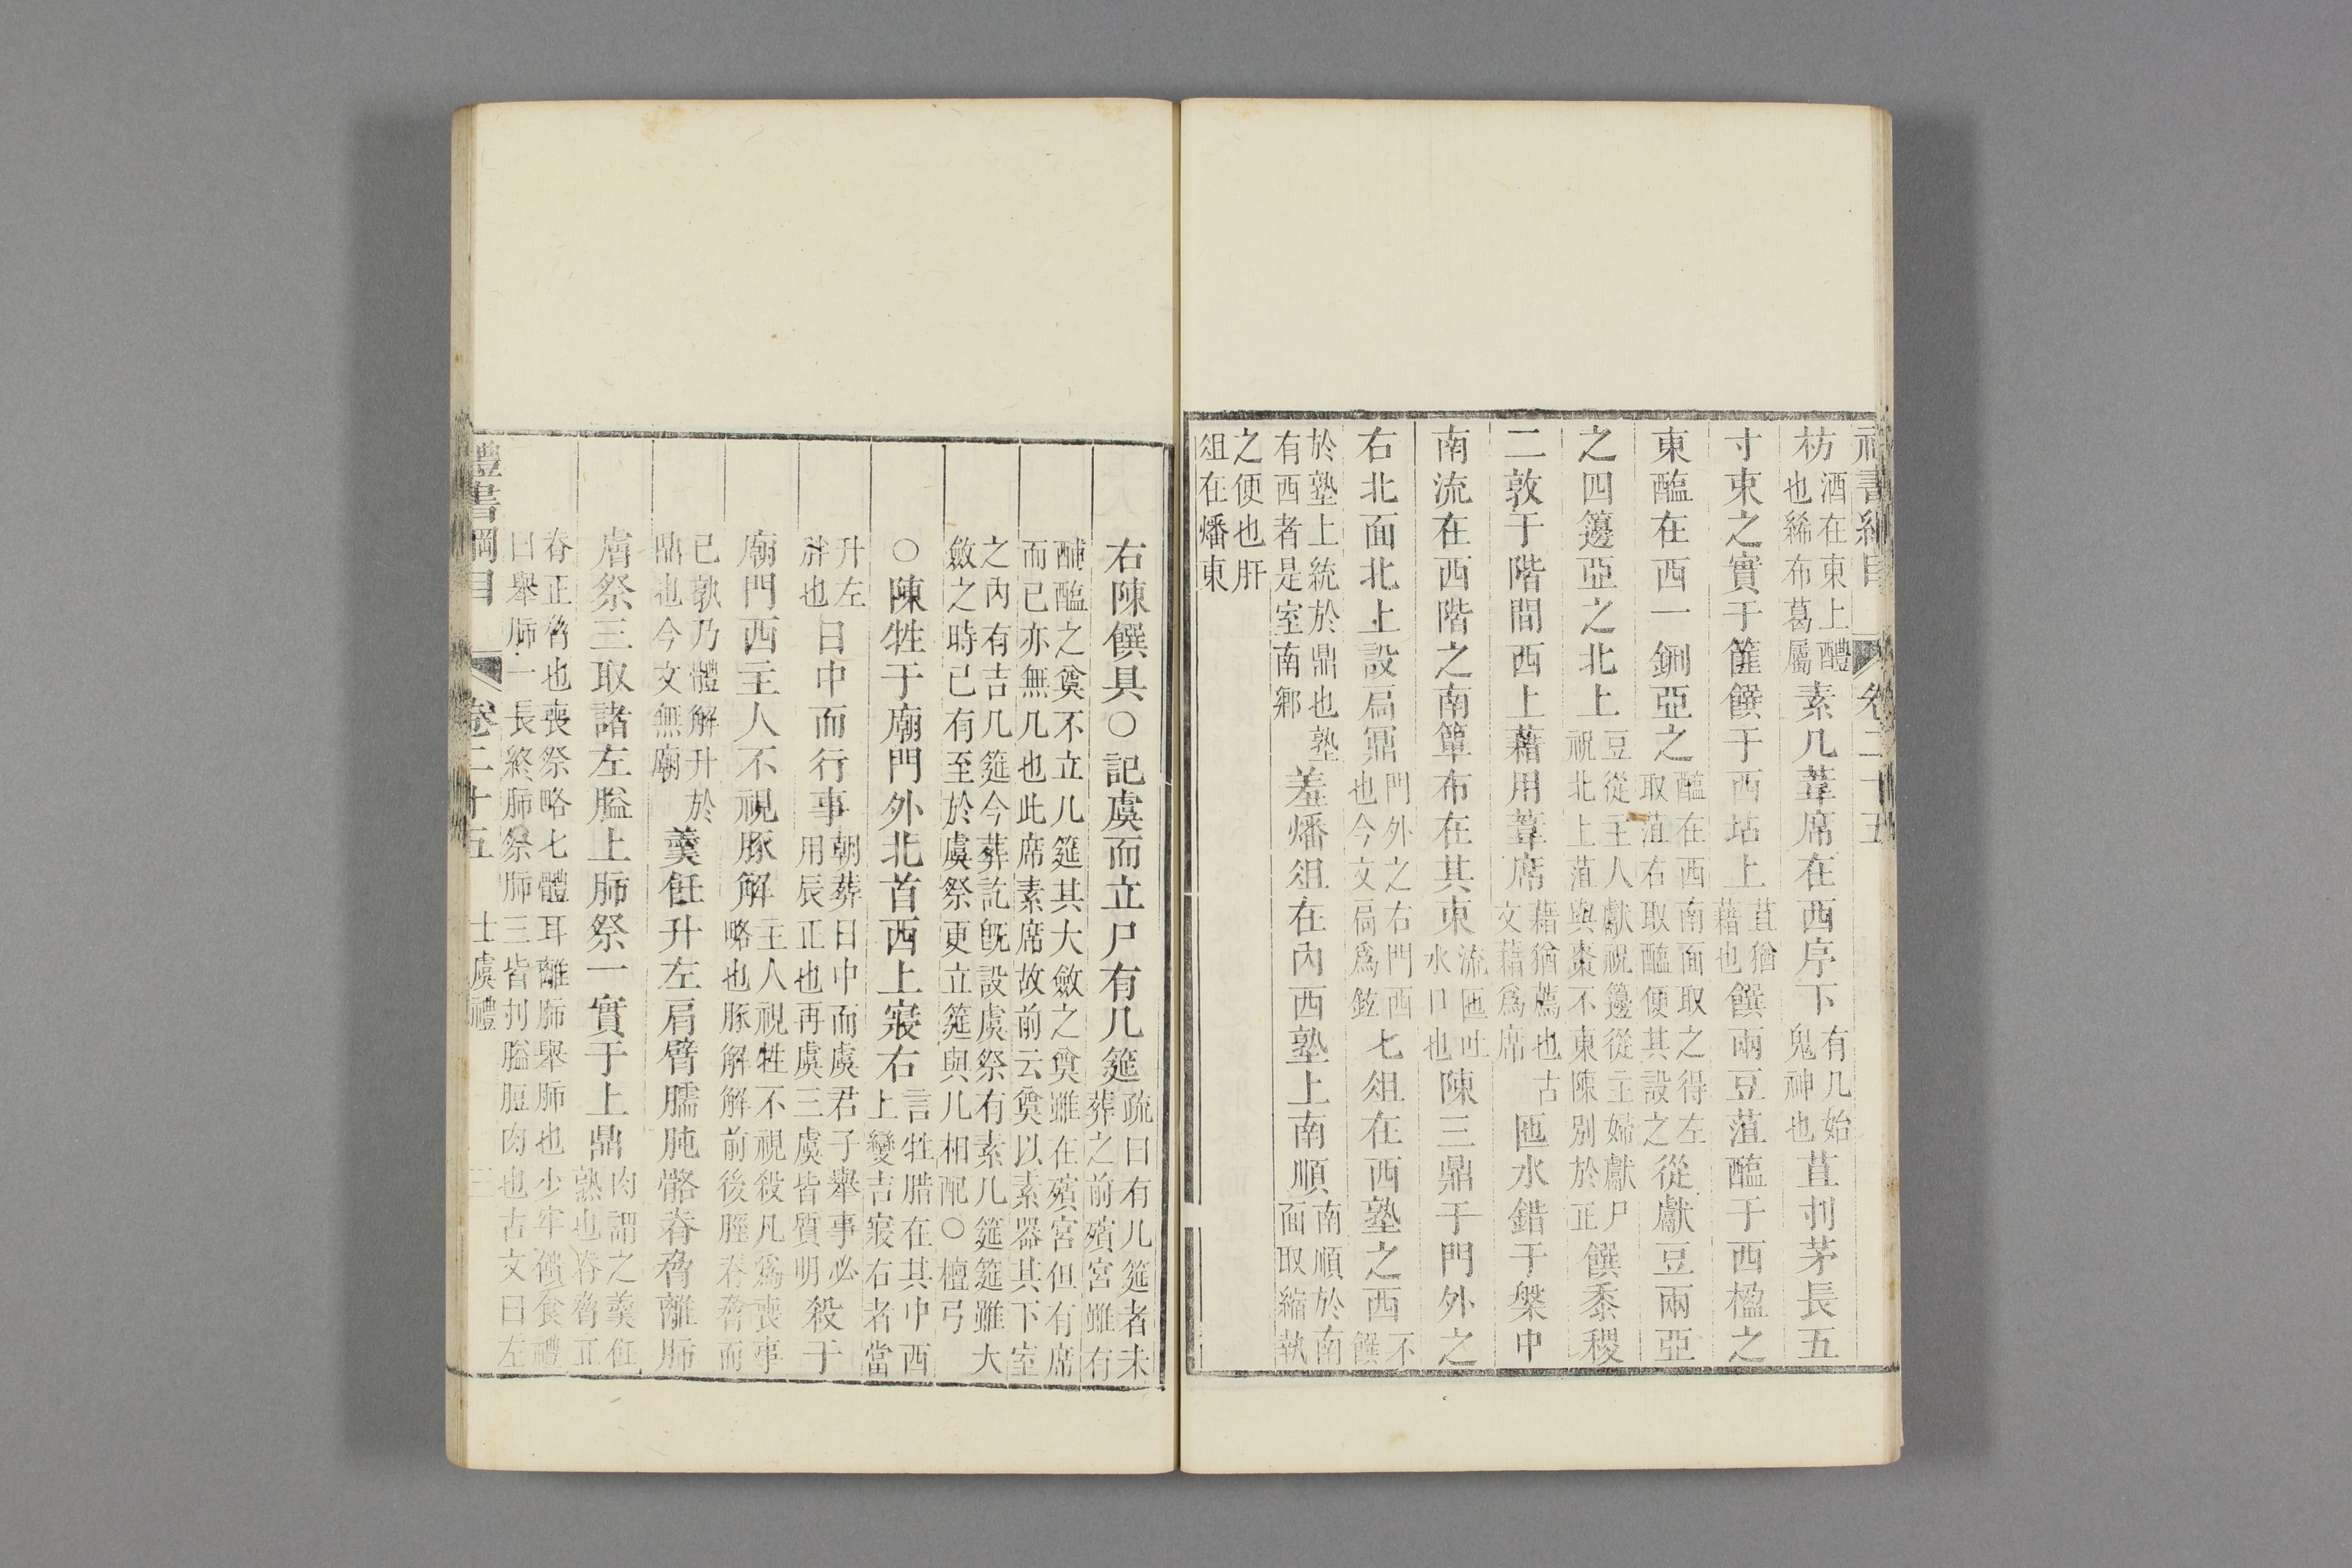 禮書綱目 卷二十五
枋酒在東上醴也絺布葛屬素几葦席在西序下有几始鬼神也苴刌茅長五
寸束之實于篚饌于西坫上苴猶藉也饌兩豆菹醢于西楹之
東醢在西一鉶亞之醢在西南面取之得左取菹右取醢便其設之從獻豆兩亞
之四籩亞之北上豆從主人獻祝籩從主婦獻尸祝北上菹與棗不東陳別於正饌黍稷
二敦于階間西上藉用葦席藉猶薦也古文藉爲席匜水錯于槃中
南流在西階之南簞布在其東流匜吐水口也陳三鼎于門外之
右北面北上設扃鼏門外之右門西也今文扃爲鉉匕俎在西塾之西不饌
於塾上統於鼎也塾有西者是室南鄉羞燔俎在內西塾上南順南順於南面取縮執
之便也肝俎在燔東
右陳饌具○記虞而立尸有几筵疏曰有几筵者未葬之前殯宮雖有
酺醢之奠不立几筵其大斂之奠雖在殯宮但有席而已亦無几也此席素席故前云奠以素器其下室
之內有吉几筵今葬訖既設虞祭有素几筵筵雖大斂之時已有至於虞祭更立筵與几相配○檀弓
○陳牲于廟門外北首西上寢右言牲腊在其中西上變吉寢右者當
升左胖也日中而行事朝葬日中而虞君子舉事必用辰正也再虞三虞皆質明殺于
廟門西主人不視豚解主人視牲不視殺凡爲喪事略也豚解解前後脛脊脅而
已孰乃體解升於鼎也今文無廟羹飪升左肩臂臑肫骼脊脅離肺
膚祭三取諸左膉上肺祭一實于上鼎肉謂之羹飪熟也脊脅正
脊正脅也喪祭略七體耳離肺舉肺也少牢饋食禮曰舉肺一長終肺祭肺三皆刌膉脰肉也古文曰左
禮書綱目 卷二十五 士虞禮 三